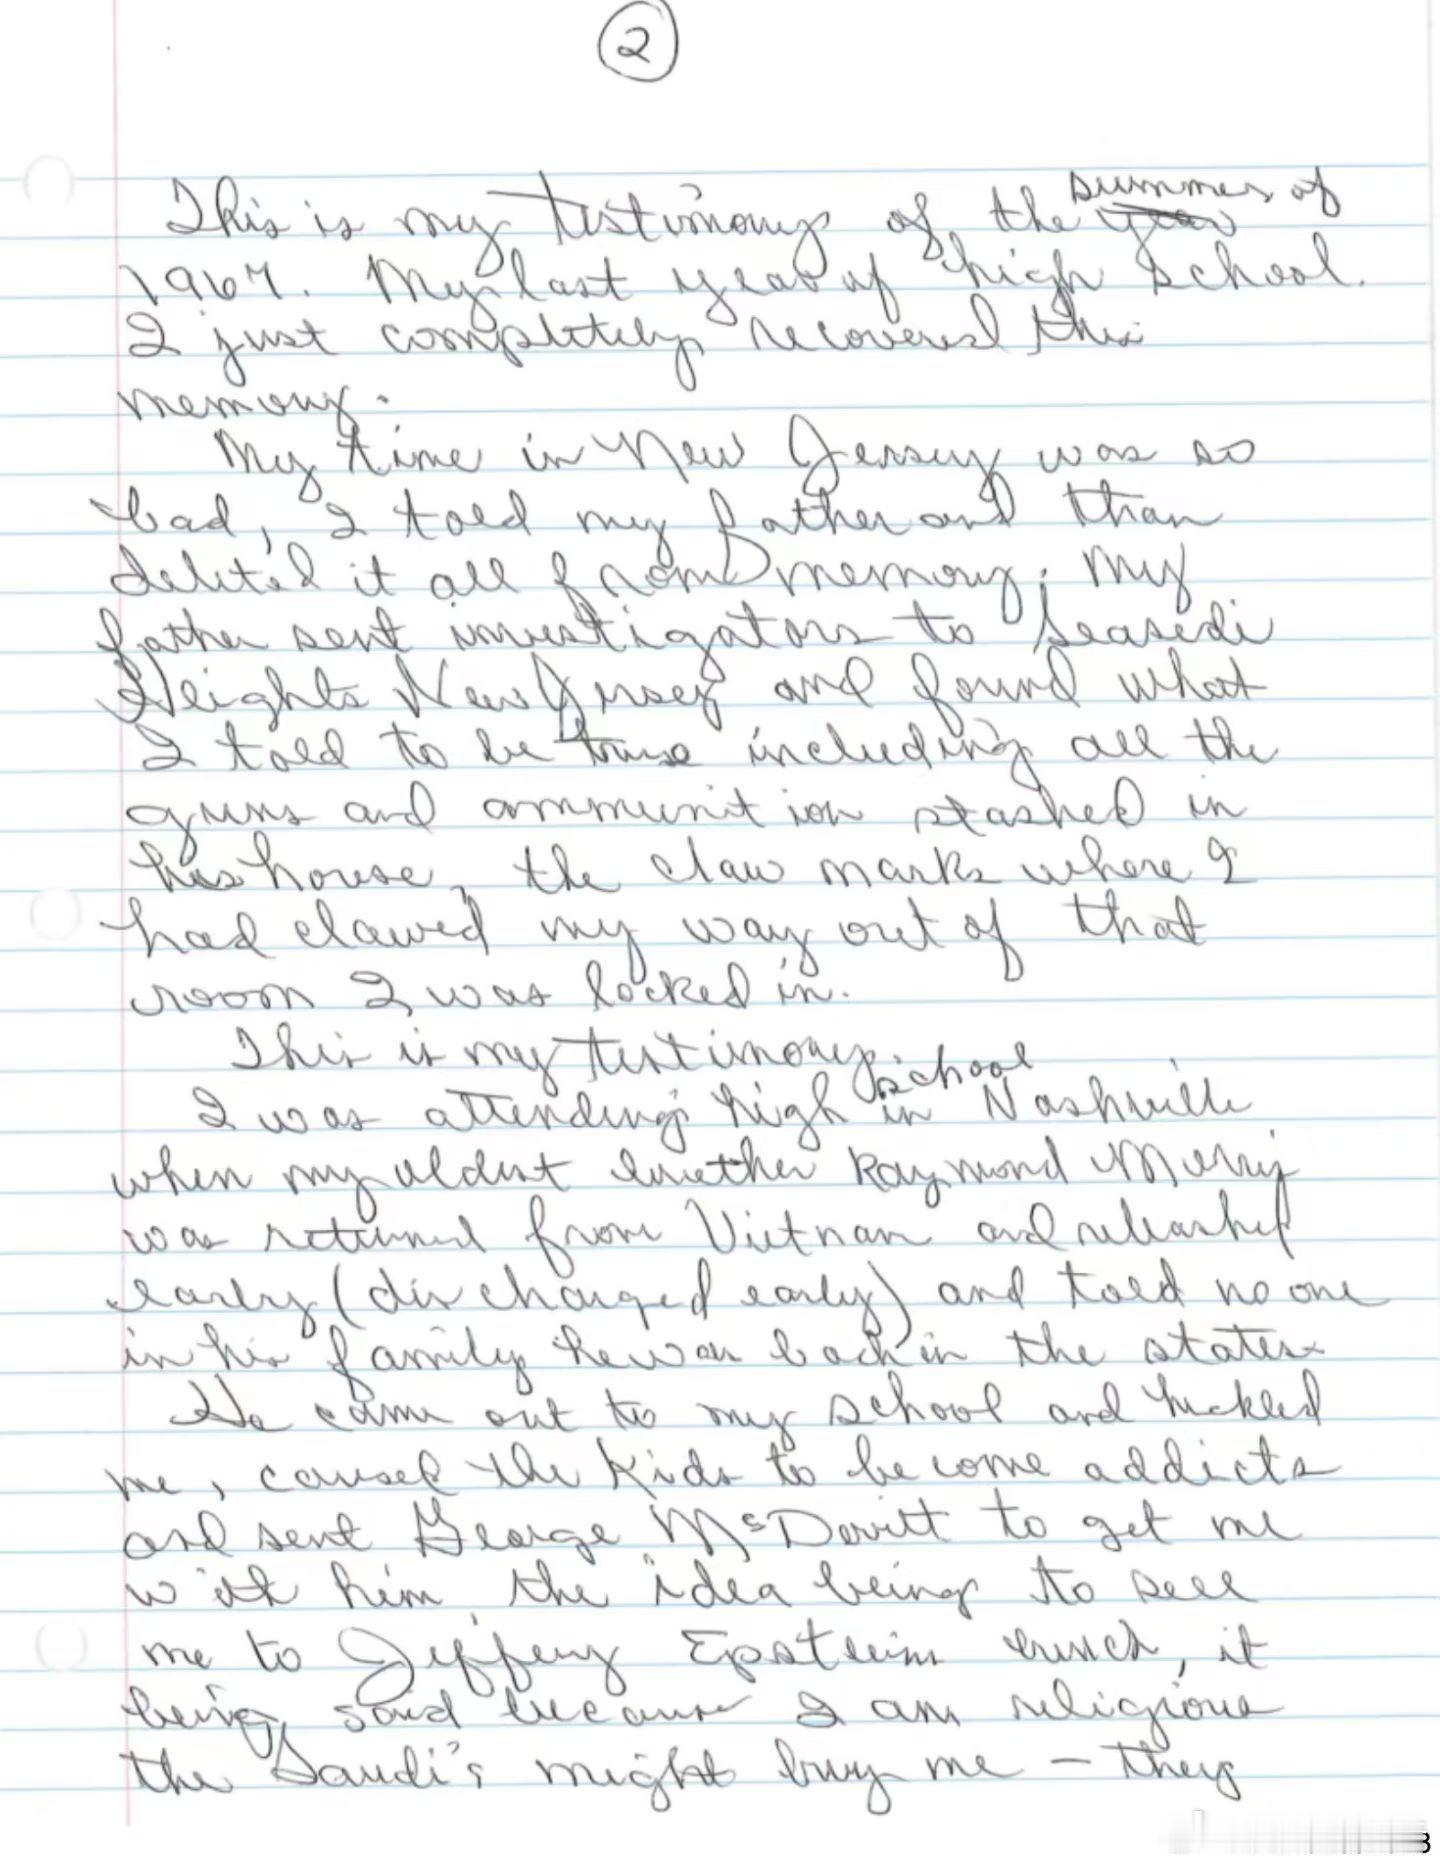 2
This is my testimony of the summer of
1967. My last year of high school.
I just completely recovered this
memory.
My time in New Jersey was so
bad, I told my father and than
deleted it all from memory. My
father sent investigators to Seaside
Heights New Jersey and found what
I told to be true including all the
guns and ammunition stashed in
his house, the claw marks where I
had clawed my way out of that
room I was locked in.
This is my testimony.
I was attending high school in Nashville
when my oldest brother Raymond
was returned from Vietnam and
early (discharged early) and told no one
in his family he was back in the states
He came out to my school and
me, caused the kids to become addicts
and sent George McDevitt to get me
with him, the idea being to sell
me to Jeffery Epstein bunch, it
being said because I am religious
the Saudi's might buy me - they